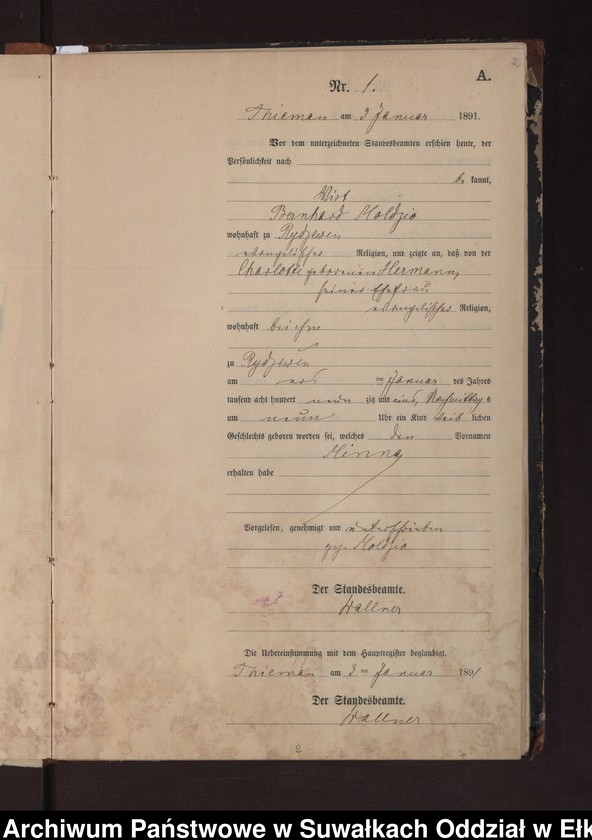 2
A.
Nr. 1.
Thiemau am 3 Januar 1891.
Vor dem unterzeichneten Standesbeamten erschien heute, der
Persönlichkeit nach
be kannt,
Wirt
Bernhard Koldzio
wohnhaft zu Rydzewen
evangelischer Religion, und zeigte an, daß von der
Charlotte geborenen Hermann,
seiner Ehefrau
evangelischer Religion,
wohnhaft bei ihm
zu Rydzewen
am ten Januar des Jahres
tausend acht hundert neun zig und eins, Nachmittag s
um neun Uhr ein Kind weib lichen
Geschlechts geboren worden sei, welches den Vornamen
Minna
erhalten habe
Vorgelesen, genehmigt und unterschrieben
gez. Koldzio
Der Standesbeamte.
Wallner
Die Uebereinstimmung mit dem Hauptregister beglaubigt.
Thiemau am 3 ten Januar 1891
Der Standesbeamte.
Wallner
2
Archiwum Państwowe w Suwałkach Oddział w Ełk